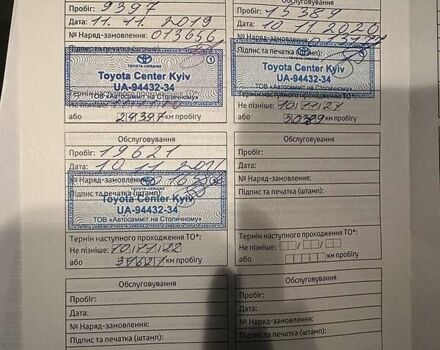 Пробіг: 9397
Дата: 11.11.2019
№ Наряд-замовлення: 013656
Підпис та печатка (штамп):
TOYOTA-UKRAINE
1
Toyota Center Kyiv
UA-94432-34
ТОВ «Автосамміт на Столичному»
Термін наступного проходження ТО*:
Не пізніше:
або 24397 км пробігу
Пробіг: 15389
Дата: 10.11.2020
№ Наряд-замовлення:
Підпис та печатка (штамп):
Toyota Center Kyiv
UA-94432-34
ТОВ «Автосамміт на Столичному»
Не пізніше:
або 30389 км пробігу
Обслуговування
Пробіг: 19621
Дата: 10.11.2021
№ Наряд-замовлення:
Підпис та печатка (штамп):
Toyota Center Kyiv
UA-94432-34
ТОВ «Автосамміт на Столичному»
Термін наступного проходження ТО*:
Не пізніше: 10.11.22
або 34621 км пробігу
Обслуговування
Пробіг:
Дата:
№ Наряд-замовлення:
Підпис та печатка (штамп):
Термін наступного проходження ТО*:
Не пізніше:
або км пробігу
Обслуговування
Пробіг:
Дата:
№ Наряд-замовлення:
Підпис та печатка (штамп):
Обслуговування
Пробіг:
Дата:
№ Наряд-замовлення:
Підпис та печатка (штамп):